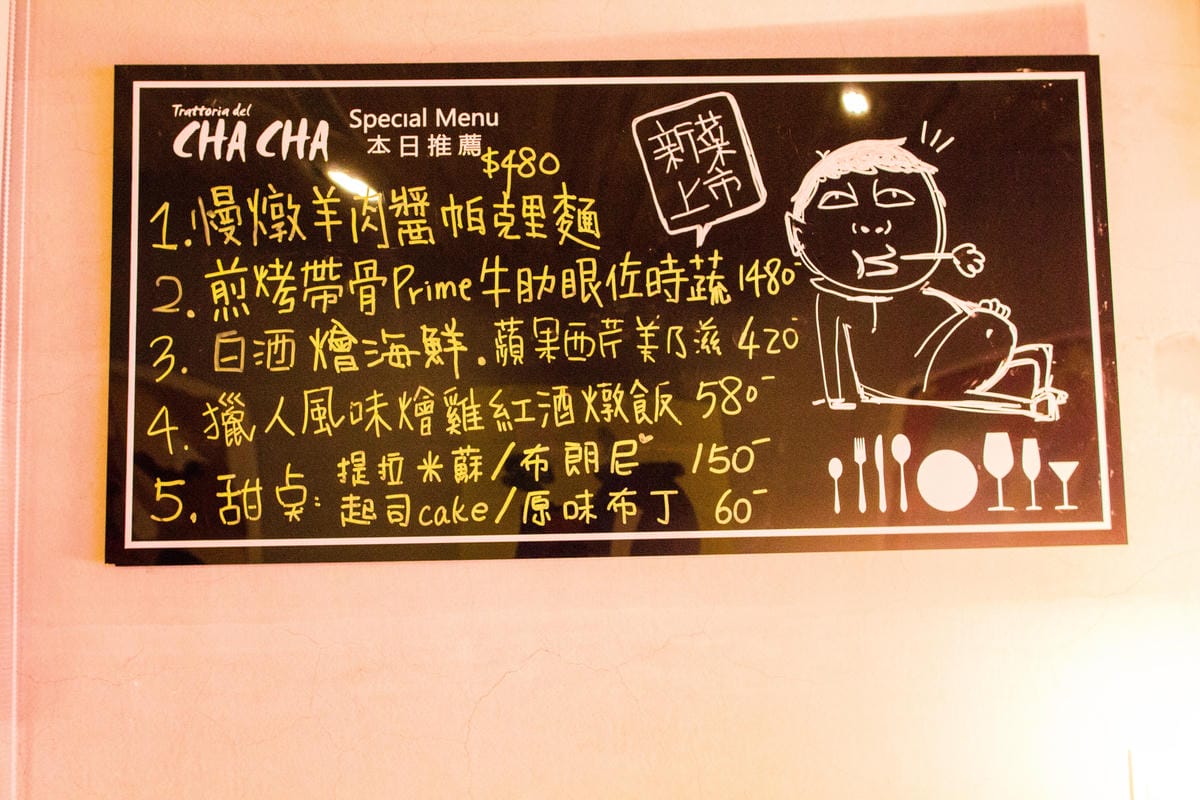 Trattoria del
CHA CHA
Special Menu
本日推薦
新菜
上市
$480
1.慢燉羊肉醬帕克里麵
2.煎烤帶骨Prime牛肋眼佐時蔬 1480-
3.白酒燴海鮮.蘋果西芹美乃滋 420-
4.獵人風味燴雞紅酒燉飯 580-
5.甜点:提拉米蘇/布朗尼 150-
起司cake/原味布丁 60-